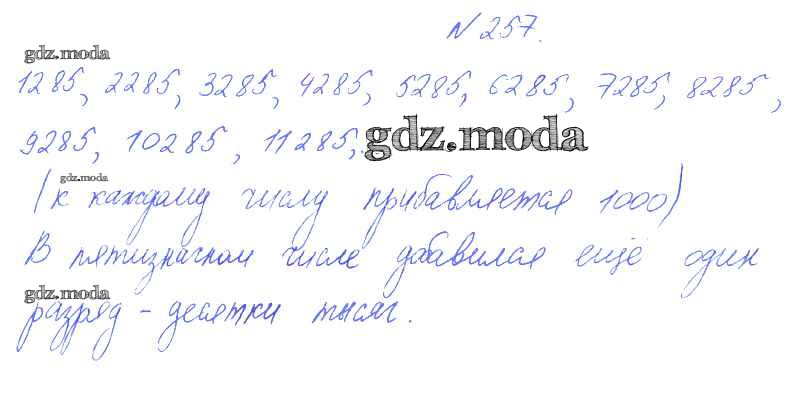 N 257.
gdz.moda
1285, 2285, 3285, 4285, 5285, 6285, 7285, 8285,
9285, 10285, 11285,. gdz.moda
gdz.moda
(к каждому числу прибавляется 1000)
В пятизначном числе добавился ещё один
gdz.moda
разряд - десятки тысяч.